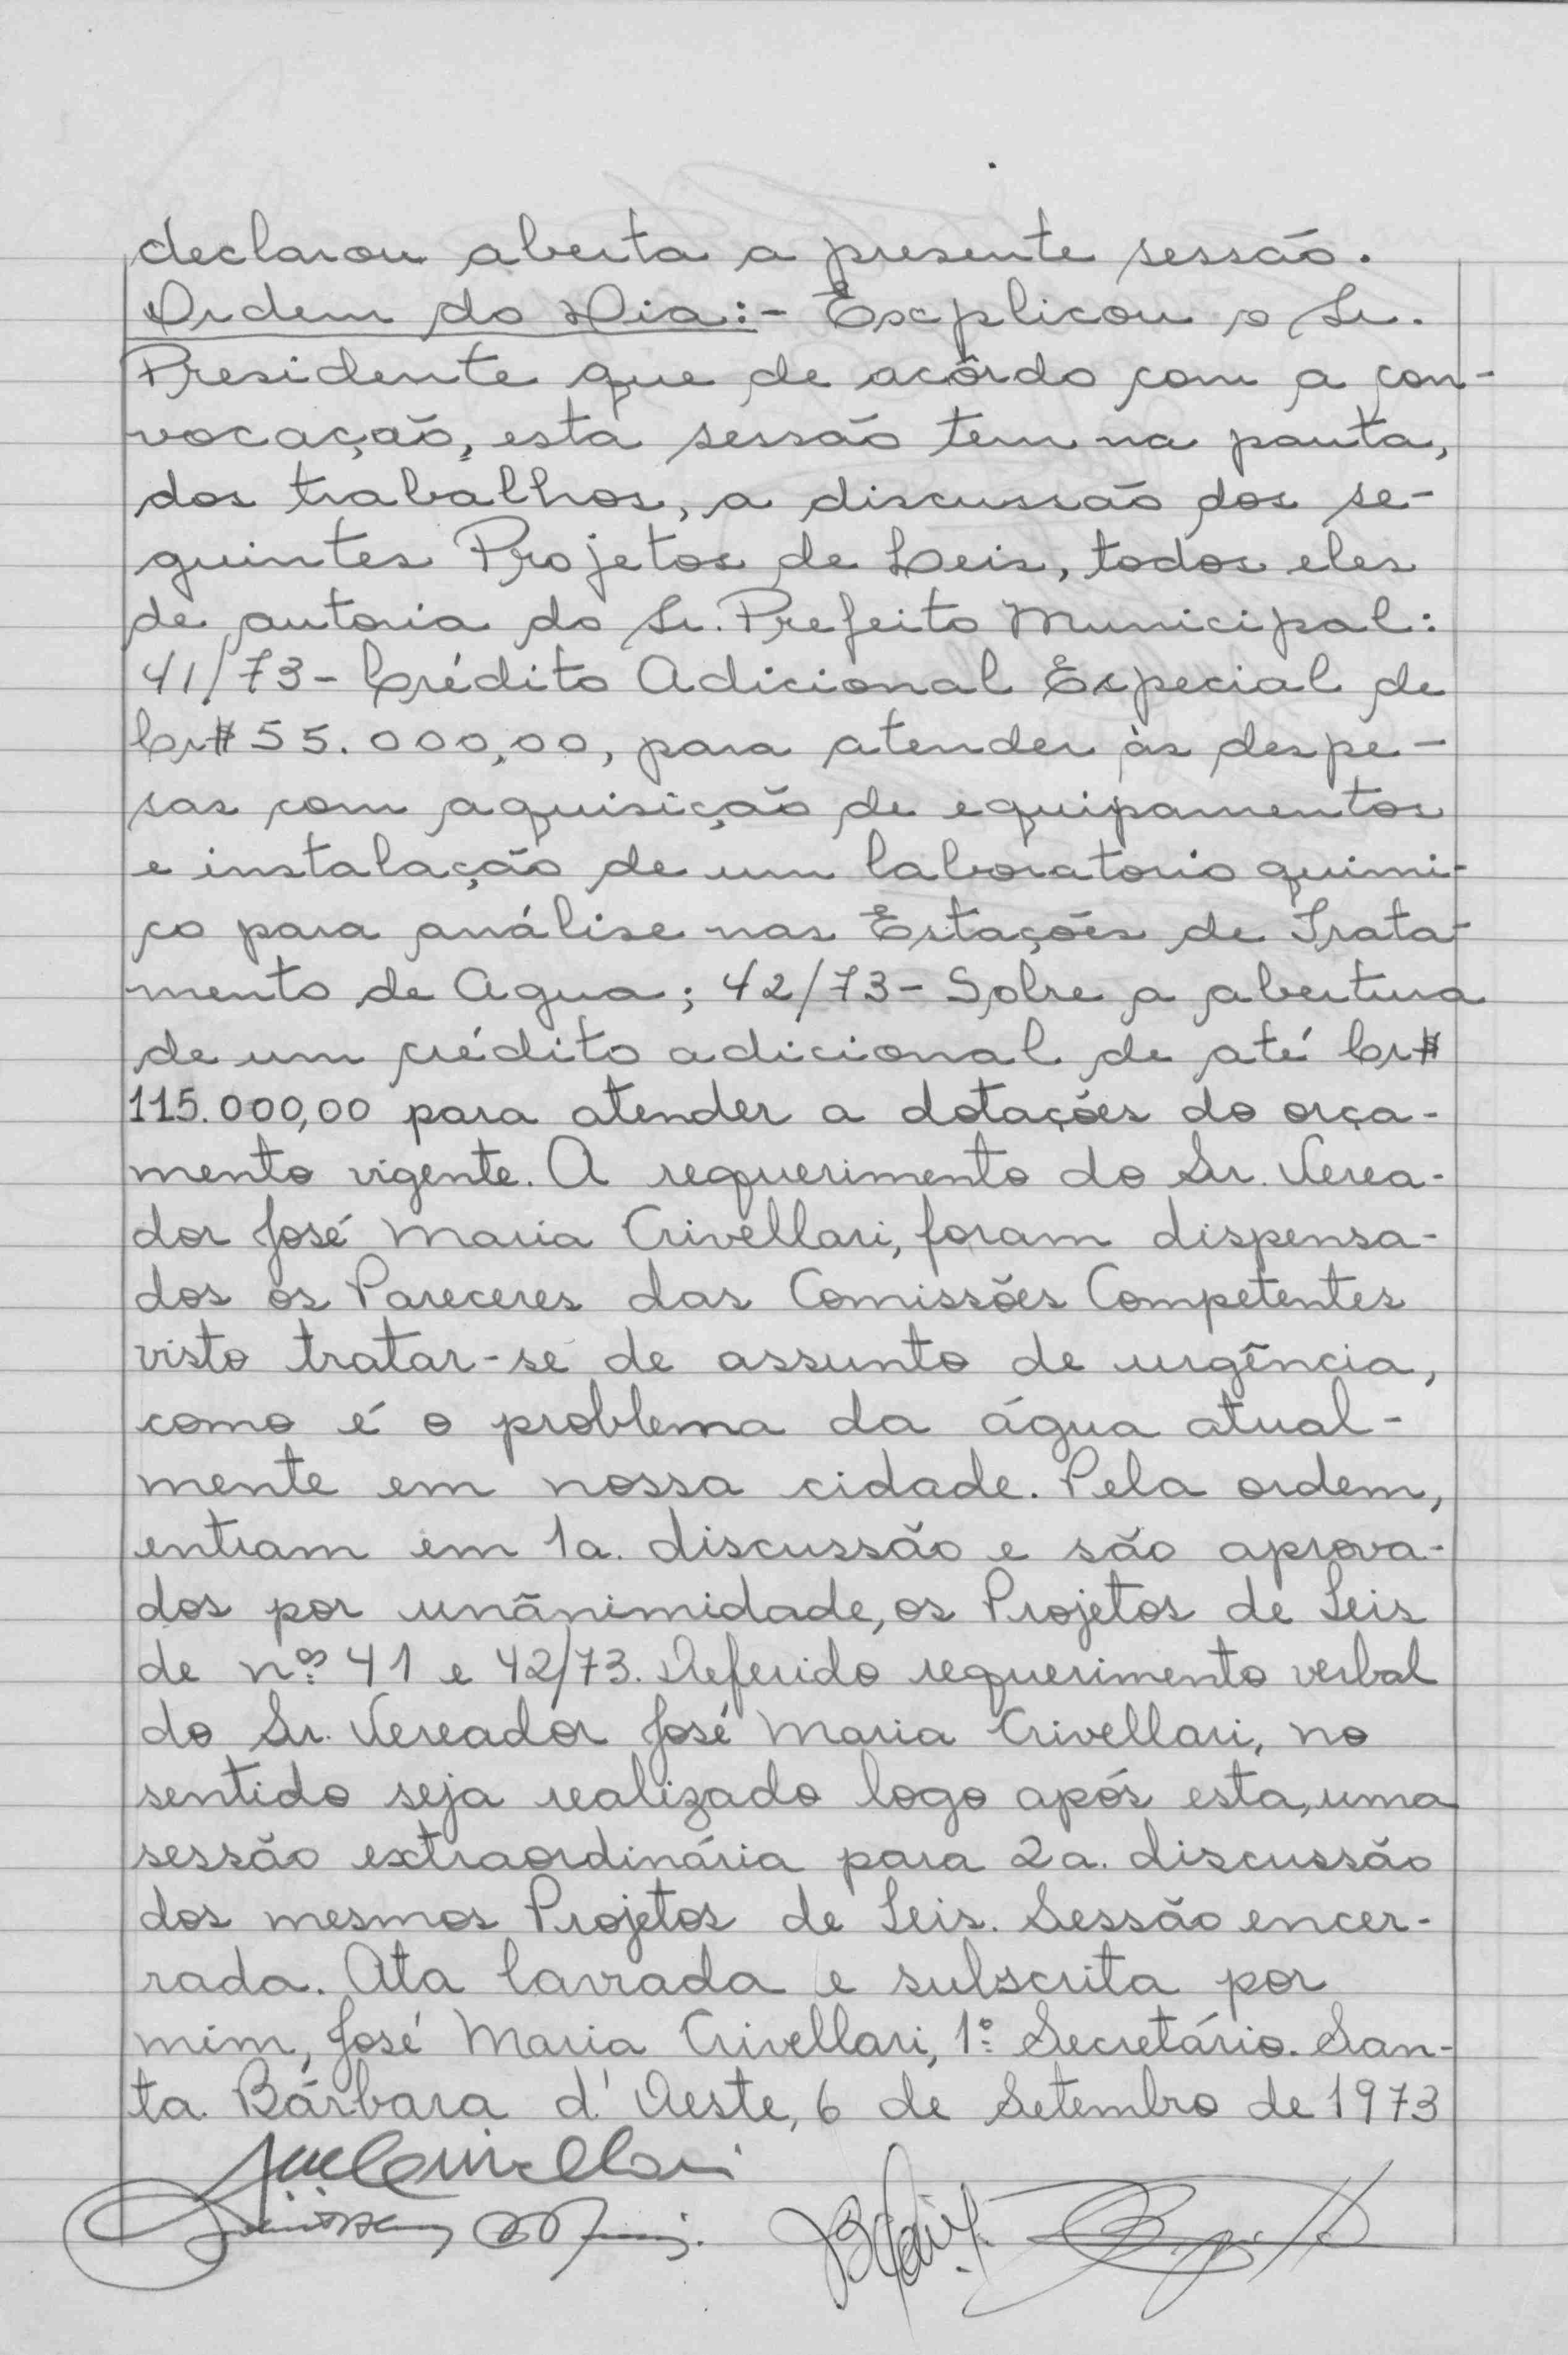 declarou aberta a presente sessão.
Ordem do Dia:- Explicou o Sr.
Presidente que de acôrdo com a con-
vocação, esta sessão tem na pauta,
dos trabalhos, a discussão dos se-
guintes Projetos de Leis, todos eles
de autoria do Sr. Prefeito Municipal:
41/73- Crédito Adicional Especial de
Cr$ 55.000,00, para atender às despe-
sas com aquisição de equipamentos
e instalação de um laboratorio quimi-
co para análise nas Estações de Trata-
mento de Agua; 42/73- Sobre a abertura
de um crédito adicional de até Cr$
115.000,00 para atender a dotações do orça-
mento vigente. A requerimento do Sr. Verea-
dor José Maria Crivellari, foram dispensa-
dos os Pareceres das Comissões Competentes
visto tratar-se de assunto de urgência,
como é o problema da água atual-
mente em nossa cidade. Pela ordem,
entram em 1a. discussão e são aprova-
dos por unânimidade, os Projetos de Leis
de nºs 41 e 42/73. Deferido requerimento verbal
do Sr. Vereador José Maria Crivellari, no
sentido seja realizado logo após esta, uma
sessão extraordinária para 2a. discussão
dos mesmos Projetos de Leis. Sessão encer-
rada. Ata lavrada e subscrita por
mim, José Maria Crivellari, 1º Secretário. San-
ta Bárbara d'Oeste, 6 de Setembro de 1973